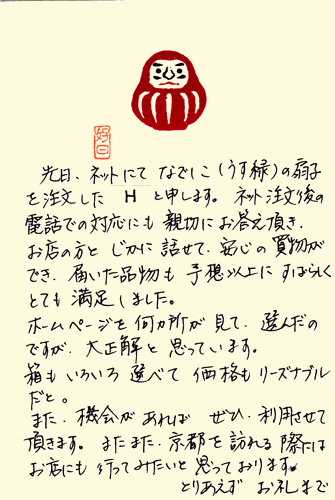 好日
先日、ネットにて なでしこ(うす緑)の扇子
を注文した H と申します。ネット注文後の
電話での対応にも 親切にお答え頂き、
お店の方と じかに 話せて、安心の買物が
でき、届いた品物も 予想以上に すばらしく
とても 満足しました。
ホームページを何カ所が見て、選んだの
ですが、大正解と思っています。
箱もいろいろ選べて 価格もリーズナブル
だと。
また、機会があれば ぜひ、利用させて
頂きます。またまた、京都を訪れる際には
お店にも行ってみたいと思っております。
とりあえず お礼まで